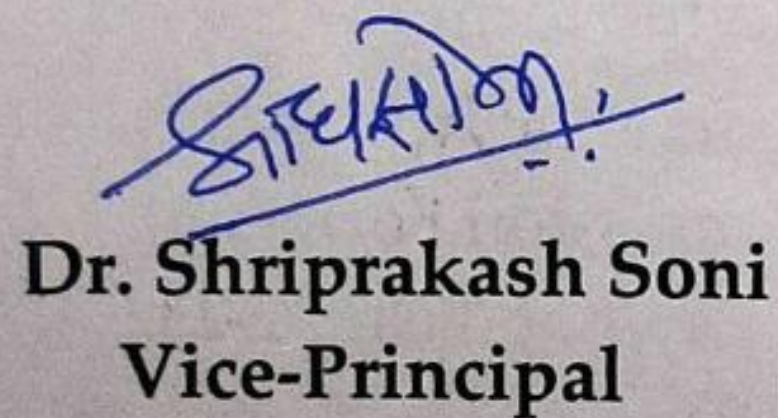 Dr. Shriprakash Soni
Vice-Principal